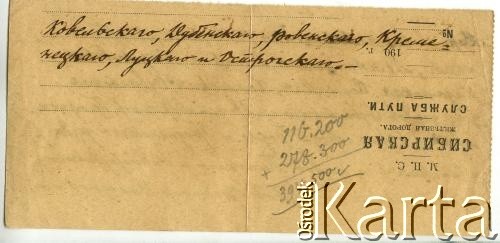 Ковельскаго, Дубенскаго, Ровенскаго, Креме-
нецкаго, Луцкаго и Острогскаго.—
№
190 г.
М. П. С.
СИБИРСКАЯ
ЖЕЛѢЗНАЯ ДОРОГА.
СЛУЖБА ПУТИ.
116.200
+ 278.300
500
Ośrodek
Karta